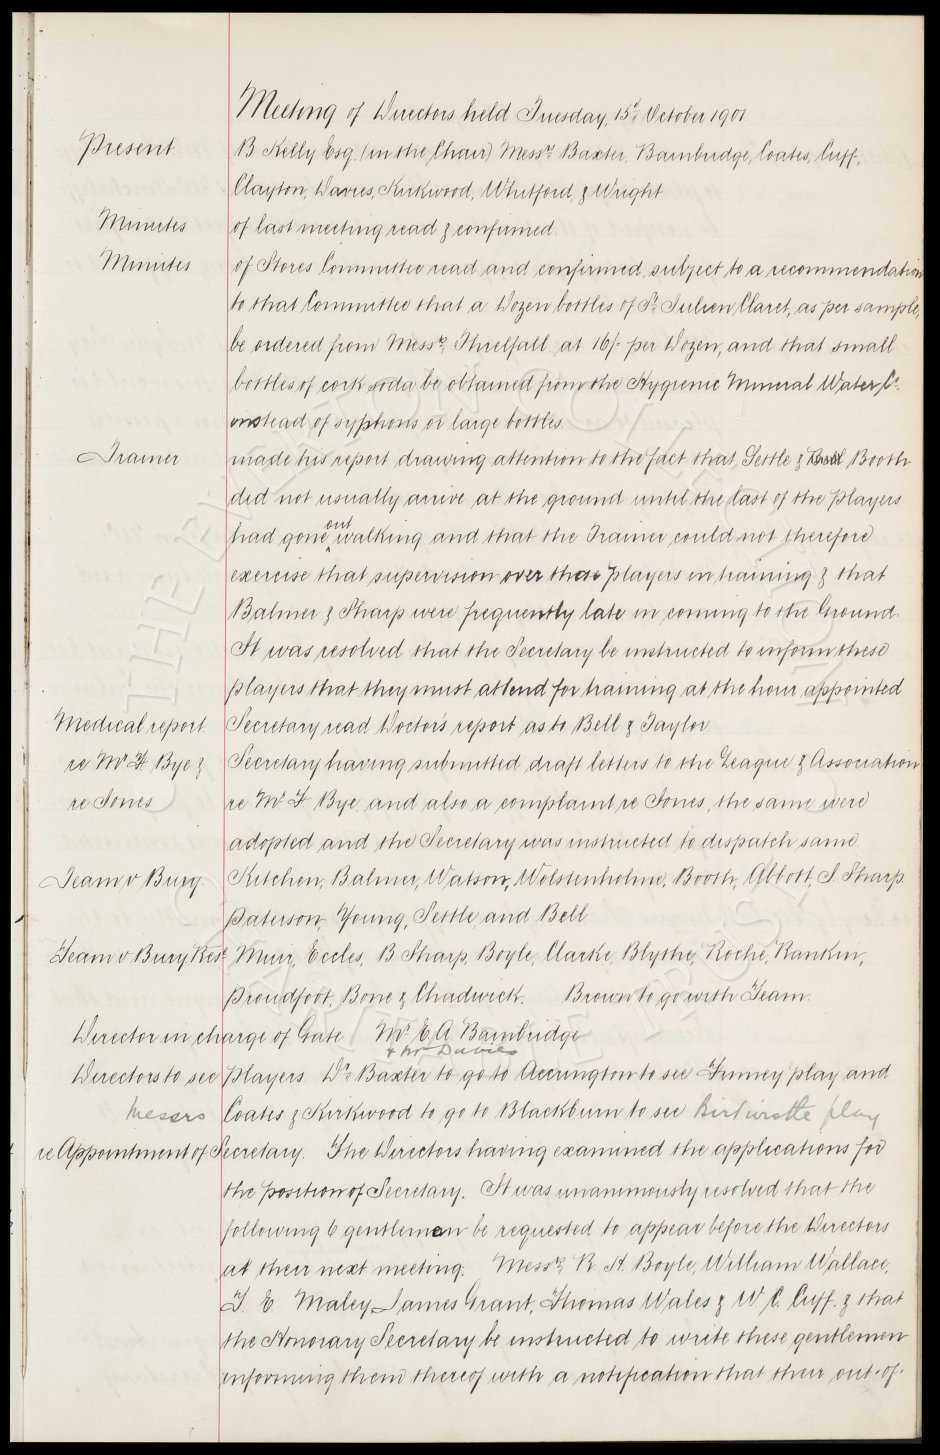 Meeting of Directors held Tuesday, 15th October 1901
Present B Kelly Esq. (in the Chair) Messrs Baxter, Bainbridge, Coates, Cuff,
Clayton, Davies, Kirkwood, Whitford, & Wright
Minutes of last meeting read & confirmed.
Minutes of Stores Committee read and confirmed, subject to a recommendation
to that Committee that a Dozen bottles of St Julien Claret, as per sample,
be ordered from Messrs Threlfall at 16/- per Dozen, and that small
bottles of cork soda be obtained from the Hygienic Mineral Water Co.
instead of syphons or large bottles.
Trainer made his report drawing attention to the fact that Settle & Booth
did not usually arrive at the ground until the last of the players
had gone out walking and that the Trainer could not therefore
exercise that supervision over those players in training & that
Balmer & Sharp were frequently late in coming to the Ground.
It was resolved that the Secretary be instructed to inform these
players that they must attend for training at the hour appointed
Medical report. Secretary read Doctor's report as to Bell & Taylor
re Mr F. Bye & Secretary having submitted draft letters to the League & Association
re Jones re Mr F. Bye, and also a complaint re Jones, the same were
adopted and the Secretary was instructed to dispatch same.
Team v Bury. Kitchen, Balmer, Watson, Wolstenholme, Booth, Abbott, J. Sharp.
Paterson, Young, Settle, and Bell
Team v Bury Rese Muir, Eccles, B Sharp, Boyle, Clarke, Blythe, Roche, Rankin,
Proudfoot, Bone & Chadwick. Brown to go with Team.
Director in charge of Gate Mr E. A. Bainbridge
+ Mr Davies
Directors to see players. Dr Baxter to go to Accrington to see Finney play and
Messrs Coates & Kirkwood to go to Blackburn to see Birtwistle play
re Appointment of Secretary. The Directors having examined the applications for
the position of Secretary. It was unanimously resolved that the
following 6 gentlemen be requested to appear before the Directors
at their next meeting. Messrs R. H. Boyle, William Wallace,
T. E Maley James Grant, Thomas Wales & W. C. Cuff. & that
the Honorary Secretary be instructed to write these gentlemen
informing them thereof with a notification that their out-of-
THE EVERTON COLLECTION